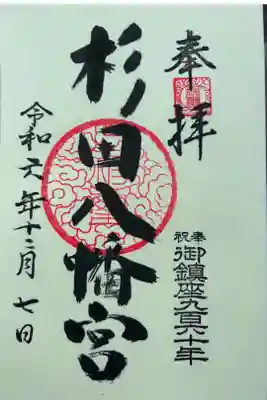 奉拝
奉祝 御鎮座九百六十年
杉田八幡宮
令和六年十二月七日